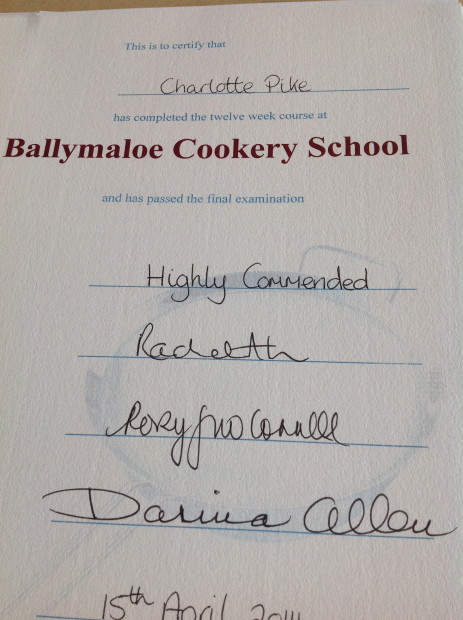 This is to certify that
Charlotte Pike
has completed the twelve week course at
Ballymaloe Cookery School
and has passed the final examination
Highly Commended
Rachel
Rory O'Connell
Darina Allen
15th April